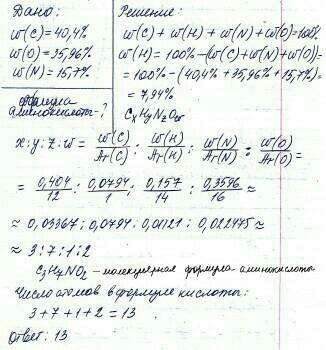 Дано:
w(C)=40,4%
w(O)=35,96%
w(N)=15,7%
Формула
аминокислоты-?
Решение:
w(C)+w(H)+w(N)+w(O)=100%
w(H)=100%-(w(C)+w(N)+w(O))=
=100%-(40,4%+35,96%+15,7%)=
=7,94%
CxHyNzOw
x:y:z:w = w(C)/Ar(C) : w(H)/Ar(H) : w(N)/Ar(N) : w(O)/Ar(O) =
= 0,404/12 : 0,0794/1 : 0,157/14 : 0,3596/16 ≈
≈ 0,03367:0,0794:0,01121:0,022475≈
≈ 3:7:1:2
C3H7NO2 - молекулярная формула аминокислоты
Число атомов в формуле кислоты:
3+7+1+2=13.
Ответ: 13